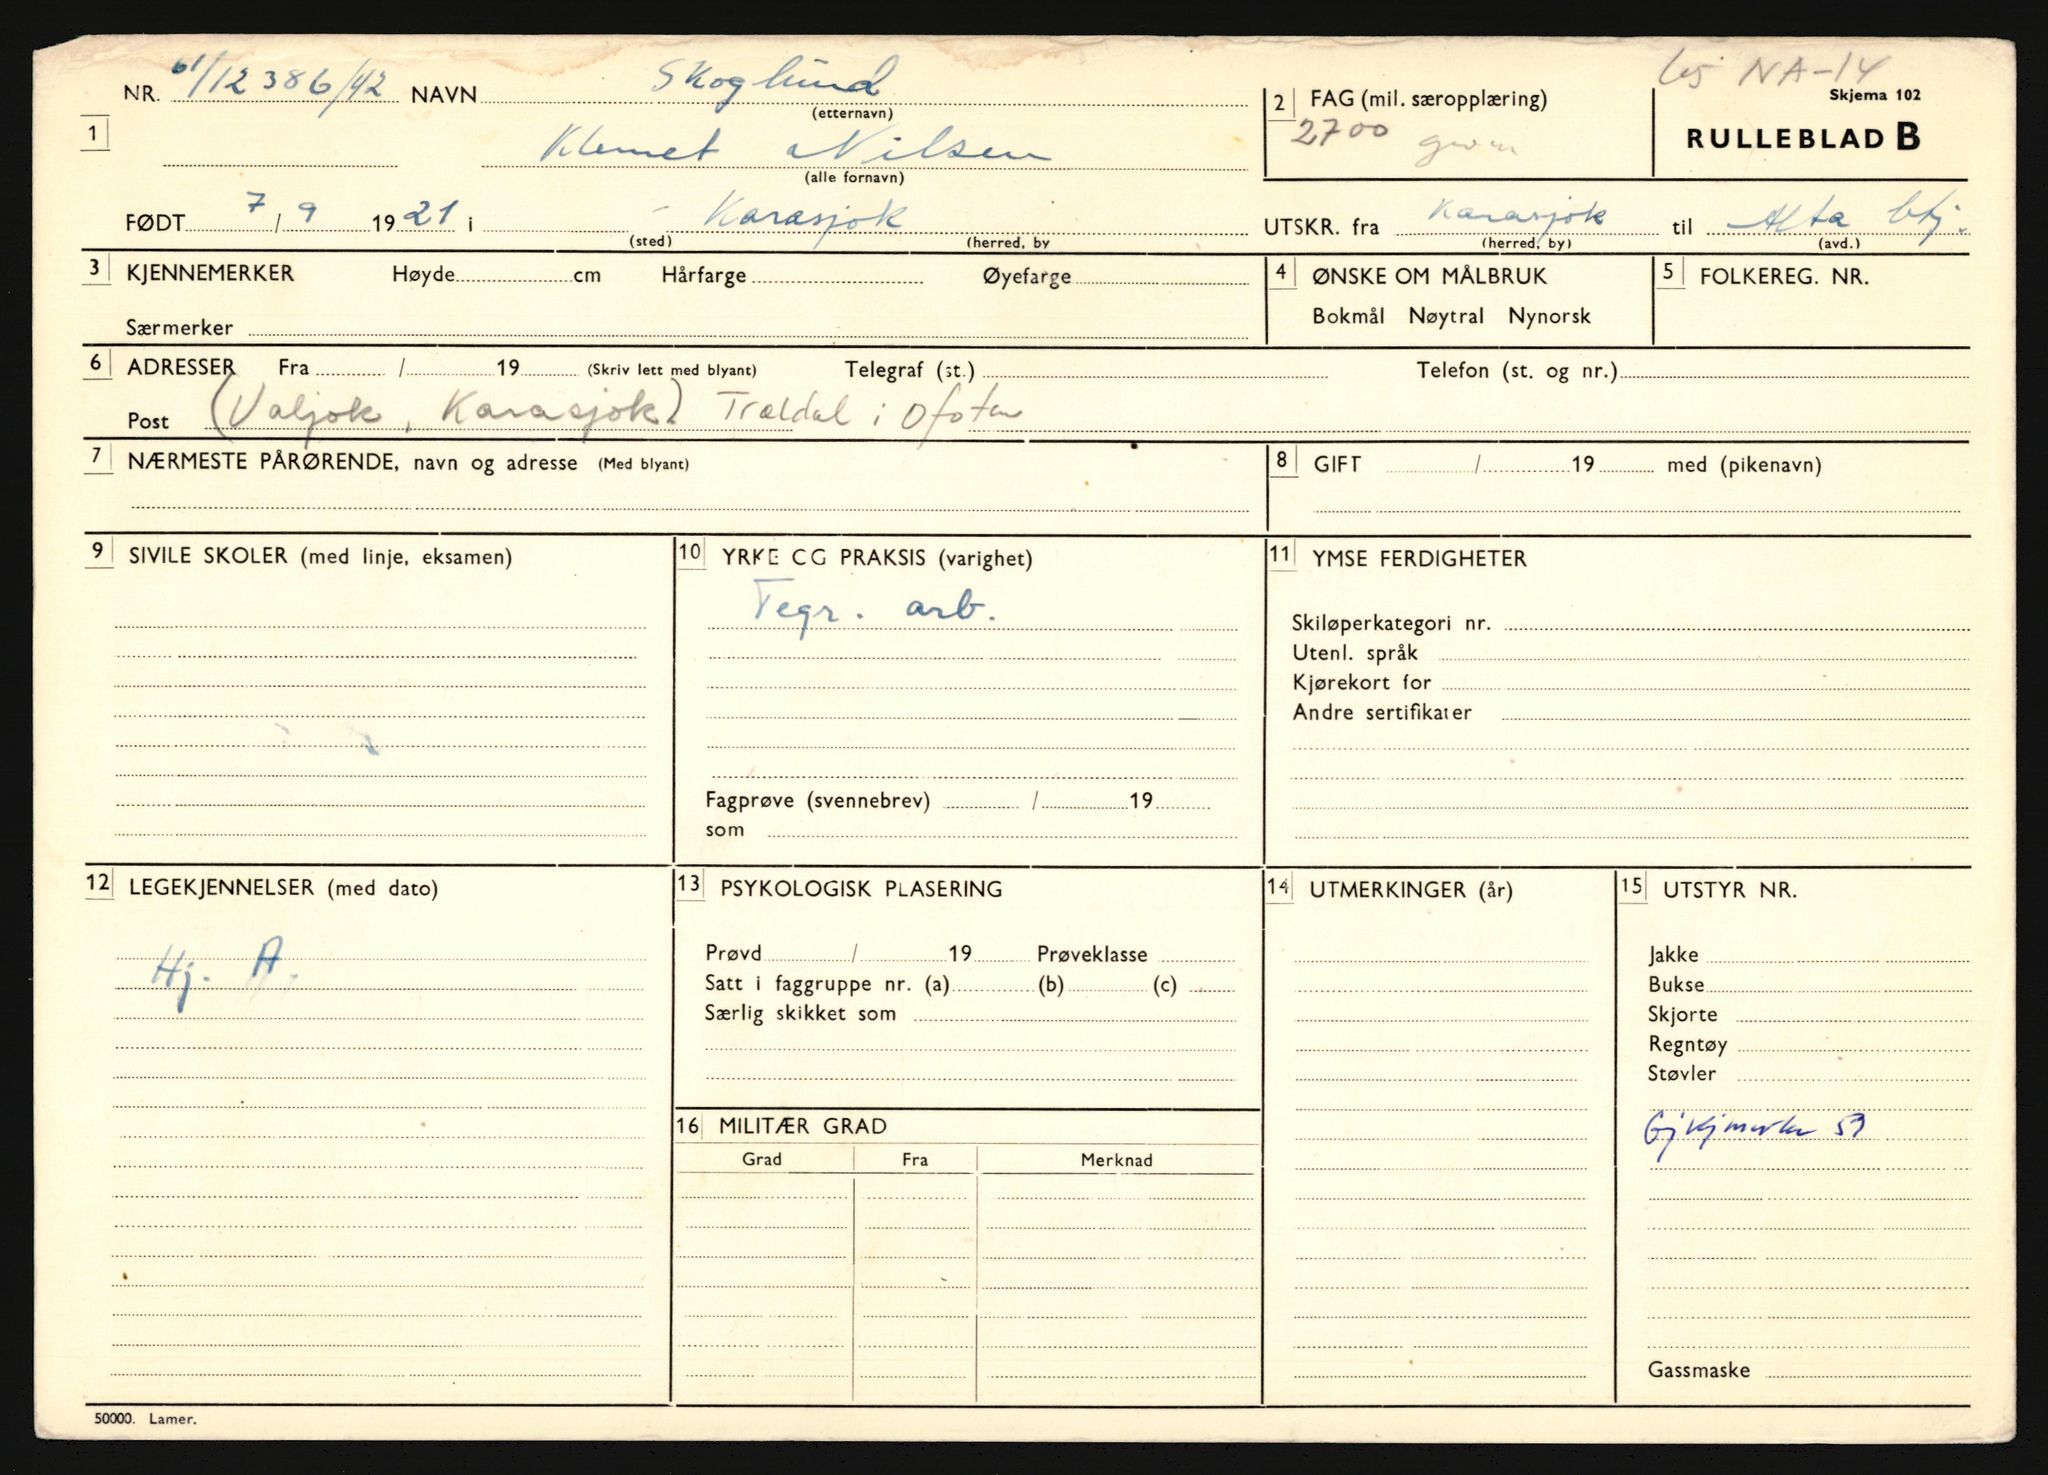 NA-14
NR. 61/12386/42 NAVN Skoglund
(etternavn)
2 FAG (mil. særopplæring)
2700
Skjema 102
RULLEBLAD B
1
Klemet Nilsen
(alle fornavn)
FØDT 7/9 1921 i - Karasjok
(sted) (herred, by
UTSKR. fra Karasjok til Alta
(herred, by) (avd.)
3 KJENNEMERKER Høyde cm Hårfarge Øyefarge
Særmerker
4 ØNSKE OM MÅLBRUK
Bokmål Nøytral Nynorsk
5 FOLKEREG. NR.
6 ADRESSER Fra / 19 (Skriv lett med blyant) Telegraf (st.) Telefon (st. og nr.)
Post (Valjok, Karasjok) Trældal i Ofoten
7 NÆRMESTE PÅRØRENDE, navn og adresse (Med blyant)
8 GIFT / 19 med (pikenavn)
9 SIVILE SKOLER (med linje, eksamen)
10 YRKE OG PRAKSIS (varighet)
Tegr. arb.
Fagprøve (svennebrev) / 19
som
11 YMSE FERDIGHETER
Skiløperkategori nr.
Utenl. språk
Kjørekort for
Andre sertifikater
12 LEGEKJENNELSER (med dato)
Hj. A.
13 PSYKOLOGISK PLASERING
Prøvd / 19 Prøveklasse
Satt i faggruppe nr. (a) (b) (c)
Særlig skikket som
14 UTMERKINGER (år)
15 UTSTYR NR.
Jakke
Bukse
Skjorte
Regntøy
Støvler
Gjkjmerke 59
Gassmaske
16 MILITÆR GRAD
Grad Fra Merknad
50000. Lamer.